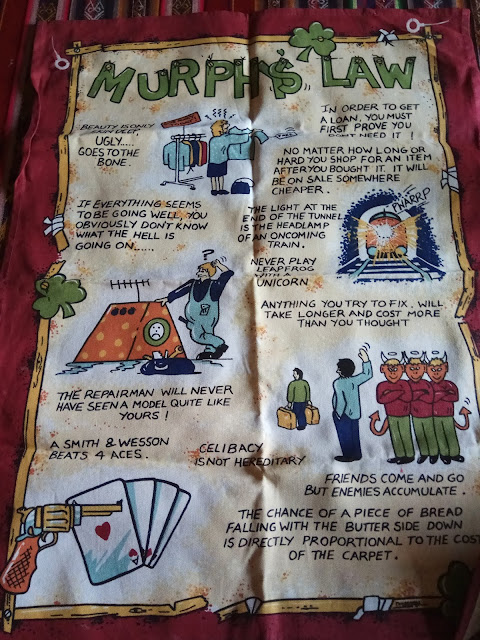 MURPHY'S LAW
BEAUTY IS ONLY
SKIN DEEP,
UGLY.....
GOES TO THE
BONE.
IN ORDER TO GET
A LOAN, YOU MUST
FIRST PROVE YOU
DON'T NEED IT !
NO MATTER HOW LONG OR
HARD YOU SHOP FOR AN ITEM
AFTER YOU BOUGHT IT. IT WILL
BE ON SALE SOMEWHERE
CHEAPER.
IF EVERYTHING SEEMS
TO BE GOING WELL, YOU
OBVIOUSLY DON'T KNOW
WHAT THE HELL IS
GOING ON......
THE LIGHT AT THE
END OF THE TUNNEL
IS THE HEADLAMP
OF AN ONCOMING
TRAIN.
PWARRP
NEVER PLAY
LEAPFROG
WITH A
UNICORN
ANYTHING YOU TRY TO FIX, WILL
TAKE LONGER AND COST MORE
THAN YOU THOUGHT
THE REPAIRMAN WILL NEVER
HAVE SEEN A MODEL QUITE LIKE
YOURS !
A SMITH & WESSON
BEATS 4 ACES.
CELIBACY
IS NOT HEREDITARY
FRIENDS COME AND GO
BUT ENEMIES ACCUMULATE.
THE CHANCE OF A PIECE OF BREAD
FALLING WITH THE BUTTER SIDE DOWN
IS DIRECTLY PROPORTIONAL TO THE COST
OF THE CARPET.